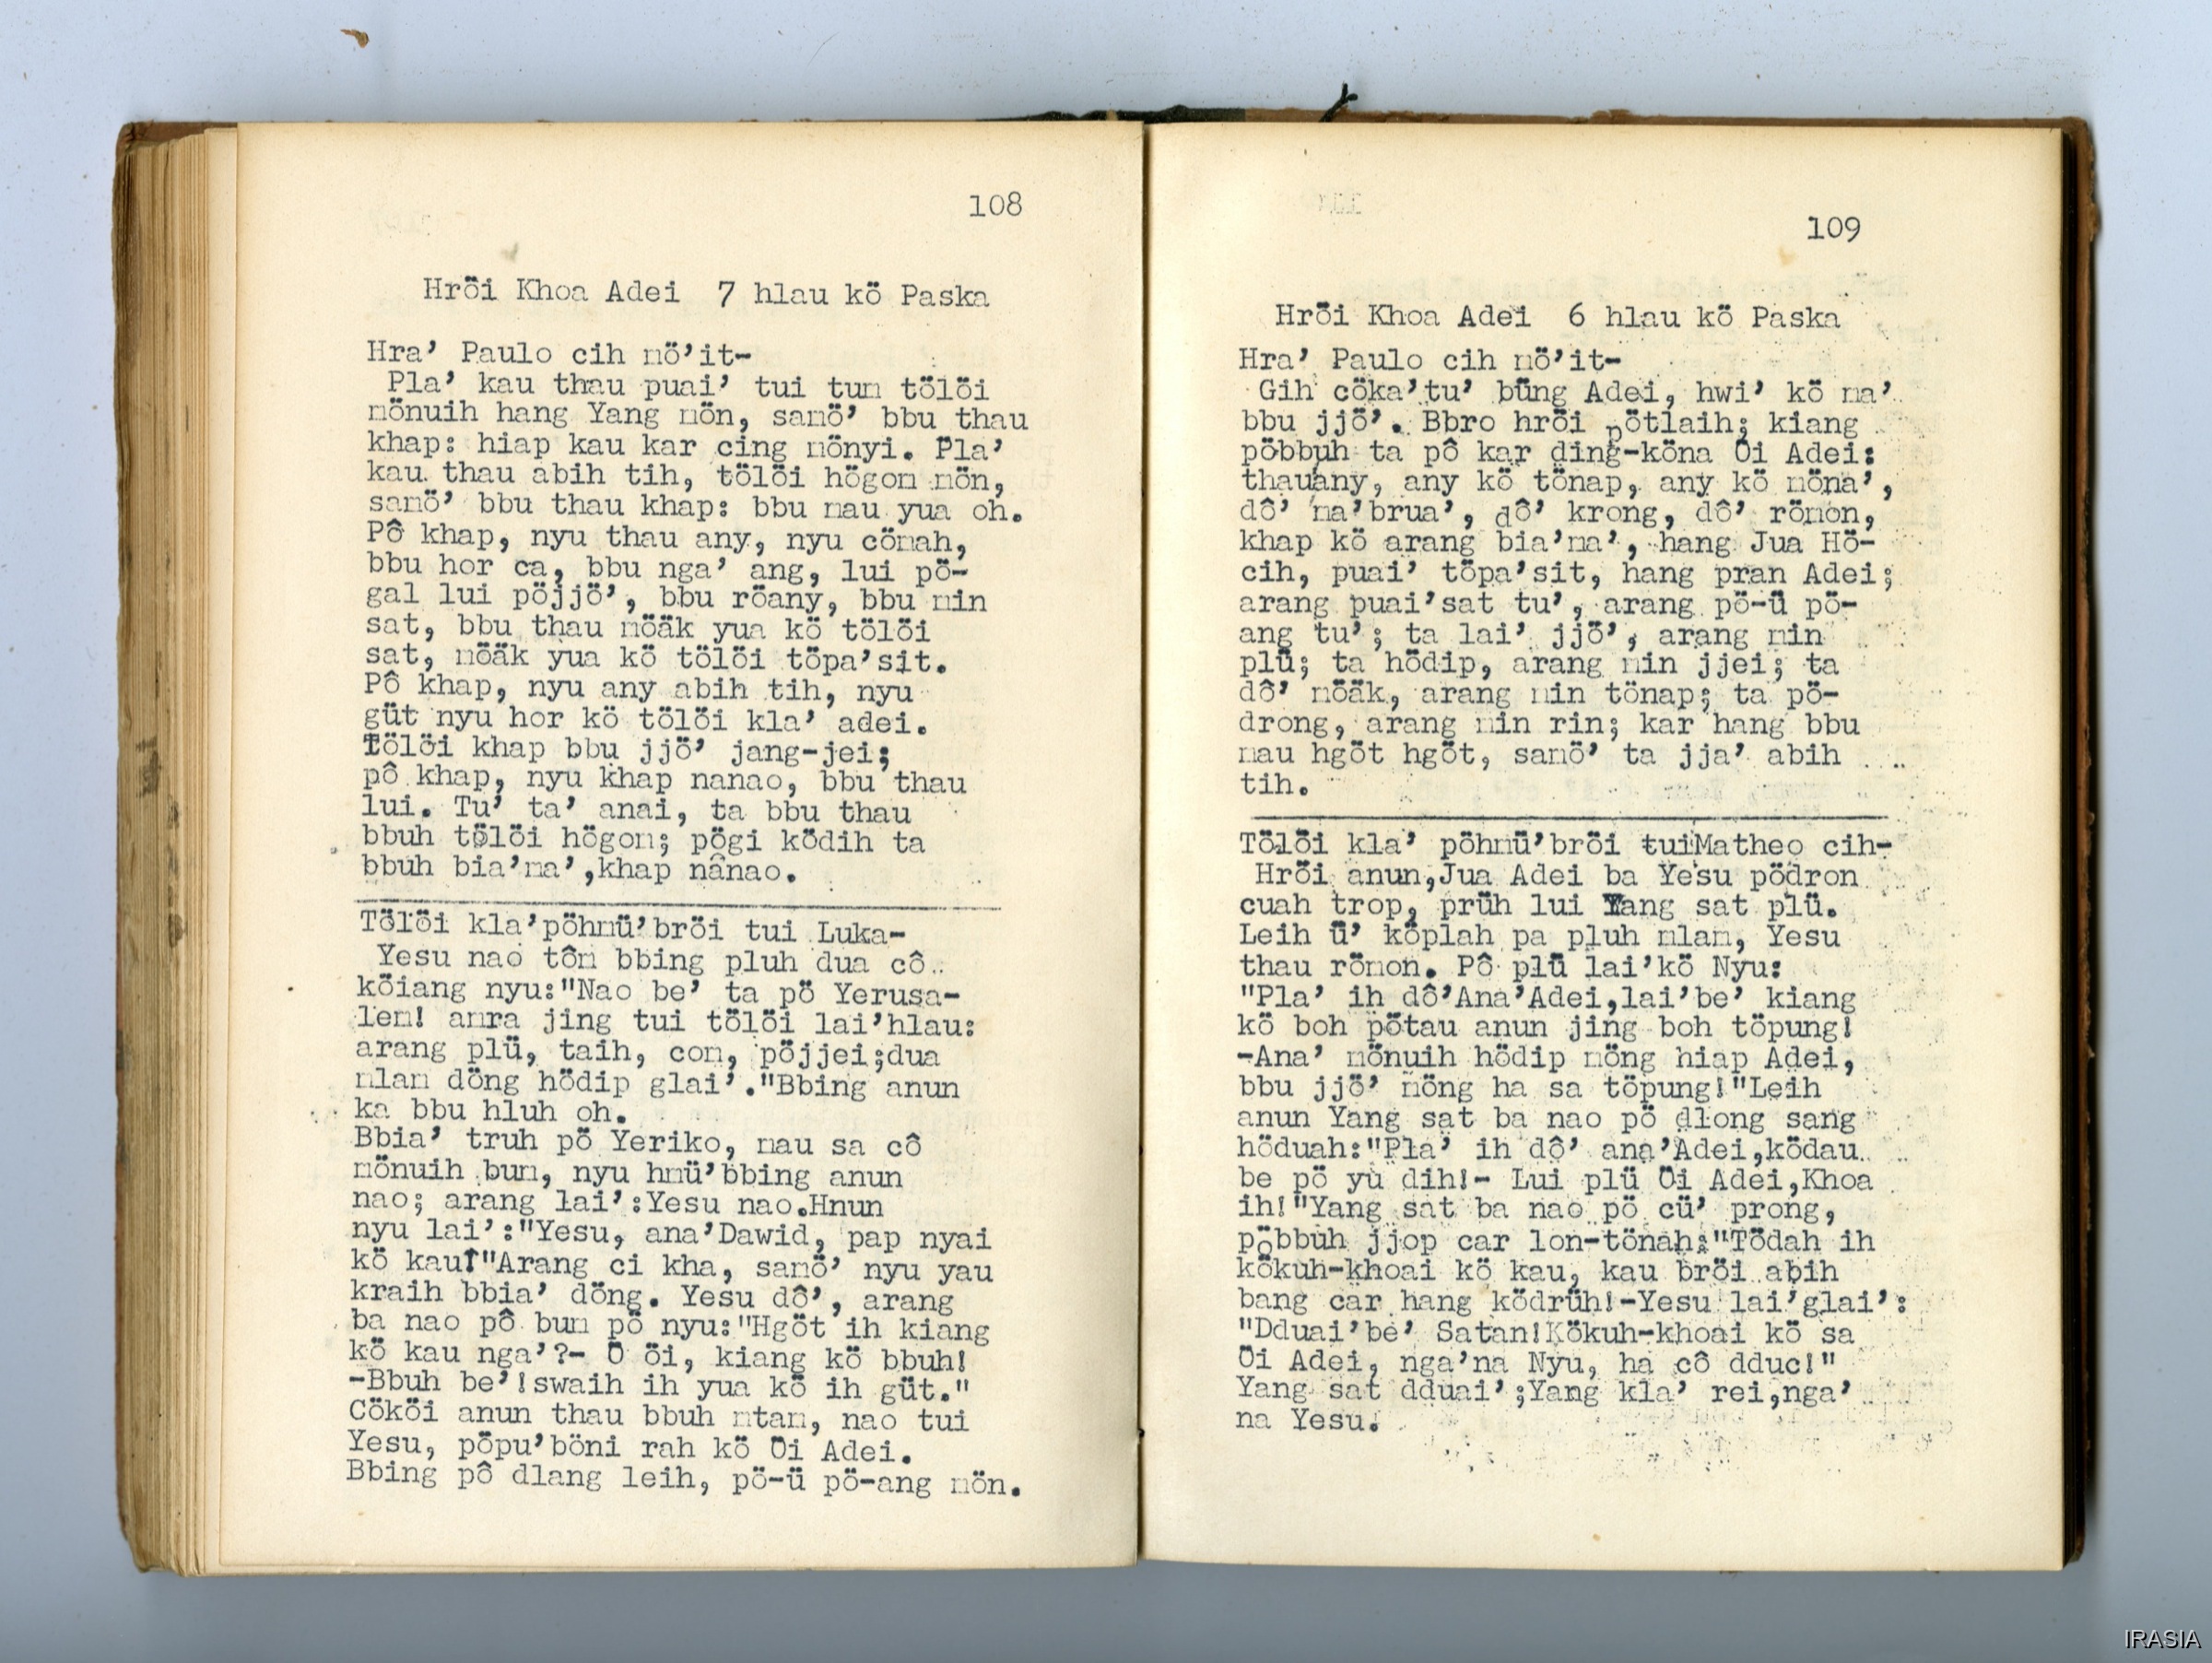 108
Hröi Khoa Adei 7 hlau kö Paska
Hra' Paulo cih mö'it-
Pla' kau thau puai' tui tum tölöi
mönuih hang Yang mön, samö' bbu thau
khap: hiap kau kar cing mönyi. Pla'
kau thau abih tih, tölöi högom mön,
samö' bbu thau khap: bbu mau yua oh.
Pô khap, nyu thau any, nyu cömah,
bbu hor ca, bbu nga' ang, lui pö-
gal lui pöjjö', bbu röany, bbu min
sat, bbu thau möäk yua kö tölöi
sat, möäk yua kö tölöi töpa'sit.
Pô khap, nyu any abih tih, nyu
güt nyu hor kö tölöi kla' adei.
Tölöi khap bbu jjö' jang-jei;
pô khap, nyu khap nanao, bbu thau
lui. Tu' ta' anai, ta bbu thau
bbuh tölöi högom; pögi ködih ta
bbuh bia'ma',khap nânao.
Tölöi kla'pöhmü'bröi tui Luka-
Yesu nao tôm bbing pluh dua cô
köiang nyu:"Nao be' ta pö Yerusa-
lem! amra jing tui tölöi lai'hlau:
arang plü, taih, com, pöjjei;dua
mlam döng hödip glai'."Bbing anun
ka bbu hluh oh.
Bbia' truh pö Yeriko, mau sa cô
mönuih bum, nyu hmü'bbing anun
nao; arang lai':Yesu nao.Hnun
nyu lai':"Yesu, ana'Dawid, pap nyai
kö kau!"Arang ci kha, samö' nyu yau
kraih bbia' döng. Yesu dô', arang
ba nao pô bum pö nyu:"Hgöt ih kiang
kö kau nga'?- Ö öi, kiang kö bbuh!
-Bbuh be'!swaih ih yua kö ih güt."
Cököi anun thau bbuh mtam, nao tui
Yesu, pöpu'böni rah kö Öi Adei.
Bbing pô dlang leih, pö-ü pö-ang mön.
109
Hröi Khoa Adei 6 hlau kö Paska
Hra' Paulo cih mö'it-
Gih cöka'tu' büng Adei, hwi' kö ma'
bbu jjö'. Bbro hröi pötlaih; kiang
pöbbuh ta pô kar ding-köna Öi Adei:
thau any, any kö tönap, any kö möna',
dô' ma'brua', dô' krong, dô' römon,
khap kö arang bia'ma', hang Jua Hö-
cih, puai' töpa'sit, hang pran Adei;
arang puai'sat tu', arang pö-ü pö-
ang tu'; ta lai' jjö', arang min
plü; ta hödip, arang min jjei; ta
dô' möäk, arang min tönap; ta pö-
drong, arang min rin; kar hang bbu
mau hgöt hgöt, samö' ta jja' abih
tih.
Tölöi kla' pöhmü'bröi tuiMatheo cih-
Hröi anun,Jua Adei ba Yesu pödron
cuah trop, prüh lui Yang sat plü.
Leih ü' köplah pa pluh mlam, Yesu
thau römon. Pô plü lai'kö Nyu:
"Pla' ih dô'Ana'Adei,lai'be' kiang
kö boh pötau anun jing boh töpung!
-Ana' mönuih hödip möng hiap Adei,
bbu jjö' möng ha sa töpung!"Leih
anun Yang sat ba nao pö dlong sang
höduah:"Pla' ih dô' ana'Adei,ködau
be pö yù dih!- Lui plü Öi Adei,Khoa
ih!"Yang sat ba nao pö cü' prong,
pöbbuh jjop car lon-tönah:"Tödah ih
kökuh-khoai kö kau, kau bröi abih
bang car hang ködrüh!-Yesu lai'glai':
"Dduai'be' Satan!Kökuh-khoai kö sa
Öi Adei, nga'na Nyu, ha cô dduc!"
Yang sat dduai';Yang kla' rei,nga'
na Yesu.
IRASIA